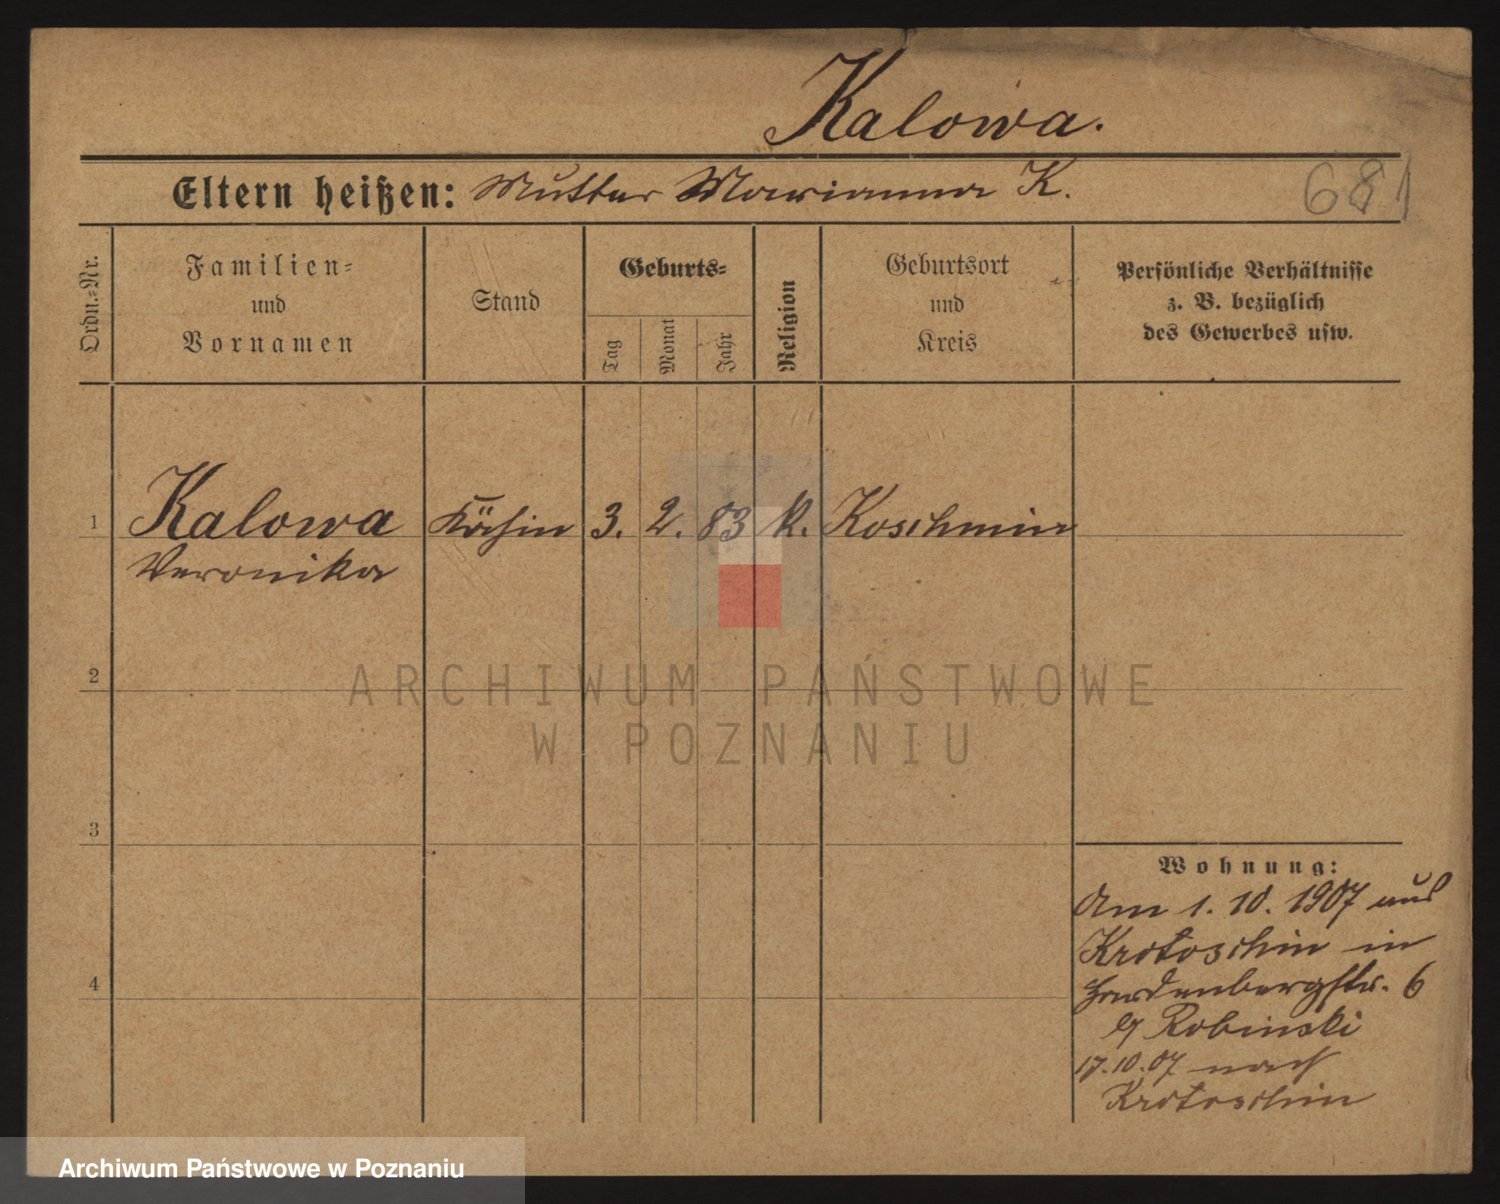 Kalowa.
Eltern heißen: Mutter Marianna K.
681
Ordn.=Nr.
Familien=
und
Vornamen
Stand
Geburts=
Tag
Monat
Jahr
Religion
Geburtsort
und
Kreis
Persönliche Verhältnisse
z. B. bezüglich
des Gewerbes usw.
1 Kalowa Köchin 3. 2. 83 k. Koschmin
Veronika
2
3
4
Wohnung:
Am 1. 10. 1907 aus
Krotoschin in
Hardenbergstr. 6
b/ Robinski
17.10.07 nach
Krotoschin
ARCHIWUM PAŃSTWOWE
W POZNANIU
Archiwum Państwowe w Poznaniu